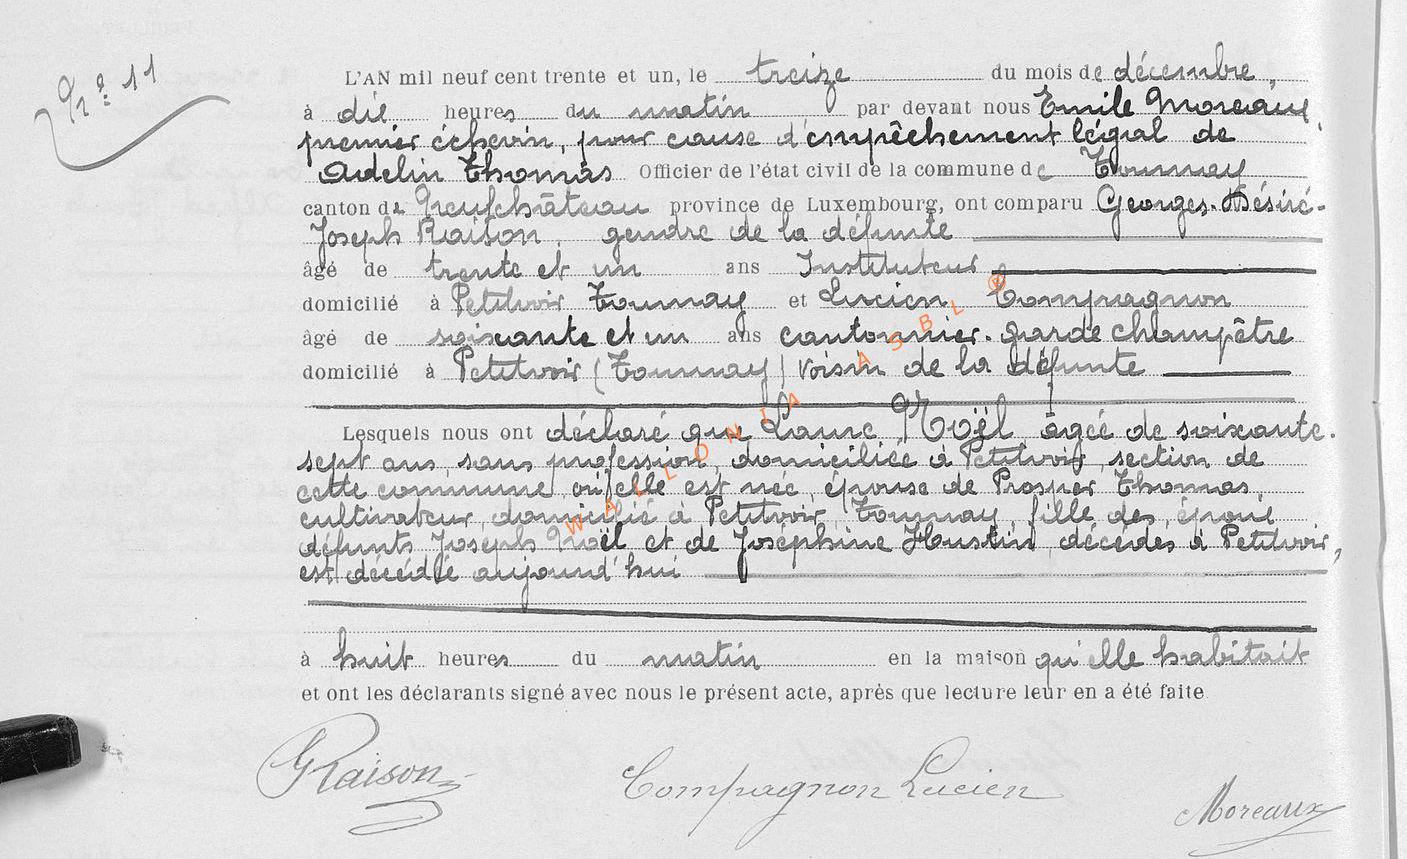 Nº 11
L'AN mil neuf cent trente et un, le treize du mois de décembre,
à dix heures du matin par devant nous Emile Moreaux,
premier échevin, pour cause d'empêchement légal de
Adelin Thomas Officier de l'état civil de la commune de Tournay
canton de Neufchâteau province de Luxembourg, ont comparu Georges-Désiré-
Joseph Raison, gendre de la défunte
âgé de trente et un ans Instituteur
domicilié à Petitvoir Tournay et Lucien Compagnon
âgé de soixante et un ans cantonnier-garde champêtre
domicilié à Petitvoir (Tournay) voisin de la défunte
Lesquels nous ont déclaré que Laure Noël âgée de soixante-
sept ans, sans profession, domiciliée à Petitvoir, section de
cette commune, où elle est née, épouse de Prosper Thomas,
cultivateur, domicilié à Petitvoir, Tournay, fille des époux
défunts Joseph Noël et de Joséphine Hustin, décédés à Petitvoir,
est décédée aujourd'hui
à huit heures du matin en la maison qu'elle habitait
et ont les déclarants signé avec nous le présent acte, après que lecture leur en a été faite
GRaison Compagnon Lucien Moreaux
WALLONIA ASBL ©